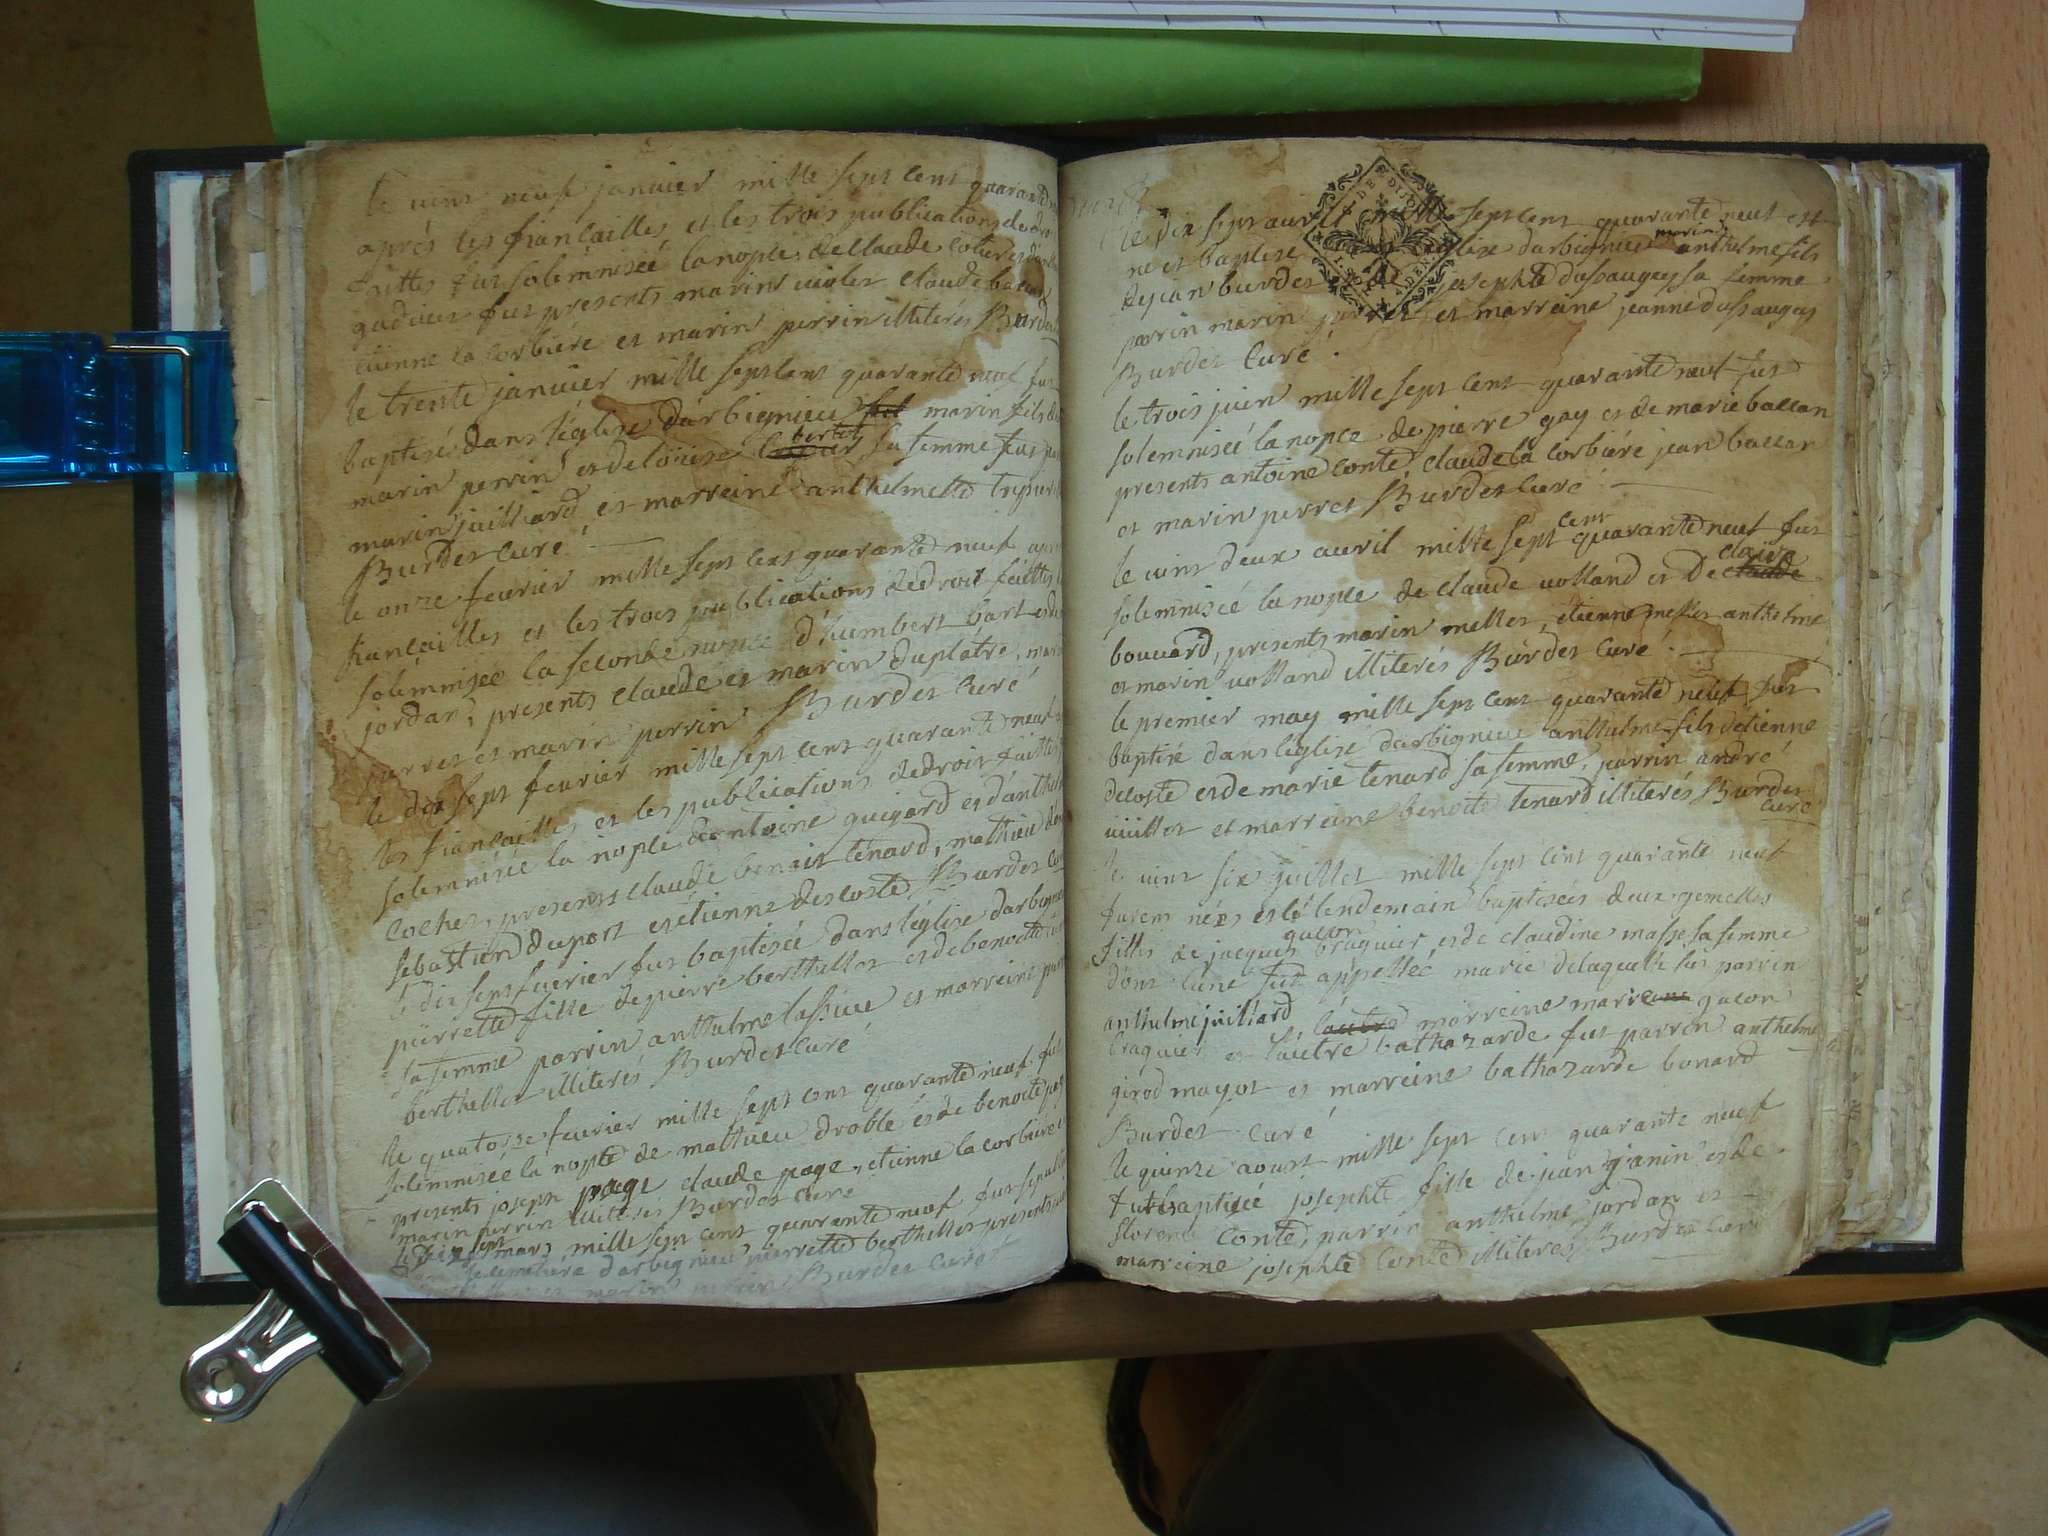 le vint neuf januier mille sept cent quarante
après les fiançailles et les trois publications de droi
faittes fut solemnisée la nopce de Claude
fut presents marin Claude ballan
etienne la Corbiére et marin perrin illiterés Burdet
le trente januier mille sept cent quarante neuf fut
baptisé dans l'église d'arbignieu marin fils de
marin perrin et de loüise bertet sa femme fut
marin juilliard et marreine anthelmette
Burdet Curé
le onze feurier mille sept cent quarante neuf
fiançailles et les trois publications de droit faittes
solemnisée la seconde nopce d'humbert bart et de
jordan, presents claude et marin duplâtre, mar
perret et marin perrin Burdet Curé
le dix sept feurier mille sept cent quarante neuf
les fiançailles et les publications de droit faittes
solemnisée la nopce d'antoine guigard et d'anthe
Cochet, presents claude benoit tenard, mathieu
sebastien duport et étienne descoste Burdet Cu
le dix sept feurier fut baptisée dans l'église d'arbignieu
pierrette fille de pierre berthellet et de benoitte
sa femme parrin anthelme lassiue et marreine
berthellet illiterés Burdet Curé
le quatorze feurier mille sept cent quarante neuf fut
solemnisée la nopce de mathieu droblé et de benoite
presents joseph page claude page, etienne la Corbiere
marin perrin illiterés Burdet Curé
le sept mars mille sept cent quarante neuf fut
dans le cimetiere d'arbignieu pierrette berthellet presents
et marin Burdet Curé
le dix sept auril mille sept cent quarante neuf est
né et baptisé l'eglise d'arbignieu marin anthelme fils
de jean burdet et de josephte dussaugey sa femme
parrin marin perret et marreine jeanne dussaugey
Burdet Curé.
le trois juin mille sept cent quarante neuf fut
solemnisée la nopce de pierre gay et de marie ballan
presents antoine conte, claude la Corbiére jean ballan
et marin perret Burdet Curé
le vint deux auril mille sept cent quarante neuf fut
solemnisée la nopce de claude volland et De claude claire
bouuard, presents marin mellet, etienne mellet anthelme
et marin volland illiterés Burdet Curé.
le premier may mille sept cent quarante neuf fut
baptisé dans l'église d'arbignieu anthelme fils d'etienne
decoste et de marie tenard sa femme, parrin andré
et marreine benoite tenard illiterés Burdet
Curé
le vint six juillet mille sept cent quarante neuf
furent nées et le lendemain baptisées deux gemelles
filles de jacques gucon braquier et de claudine masse sa femme
dont l'une fut appellée marie de laquelle fut parrin
anthelme juilliard l'autre marreine marie gucon
braquier et l'autre bathazarde fut parrin anthelme
girod mayot et marreine bathazarde bonard
Burdet Curé
le quinze aoust mille sept cent quarante neuf
fut baptisée josephte fille de jean janin et de
florence Conte, parrin anthelme jordan et
marreine josephte Conte illiterés Burdet Curé